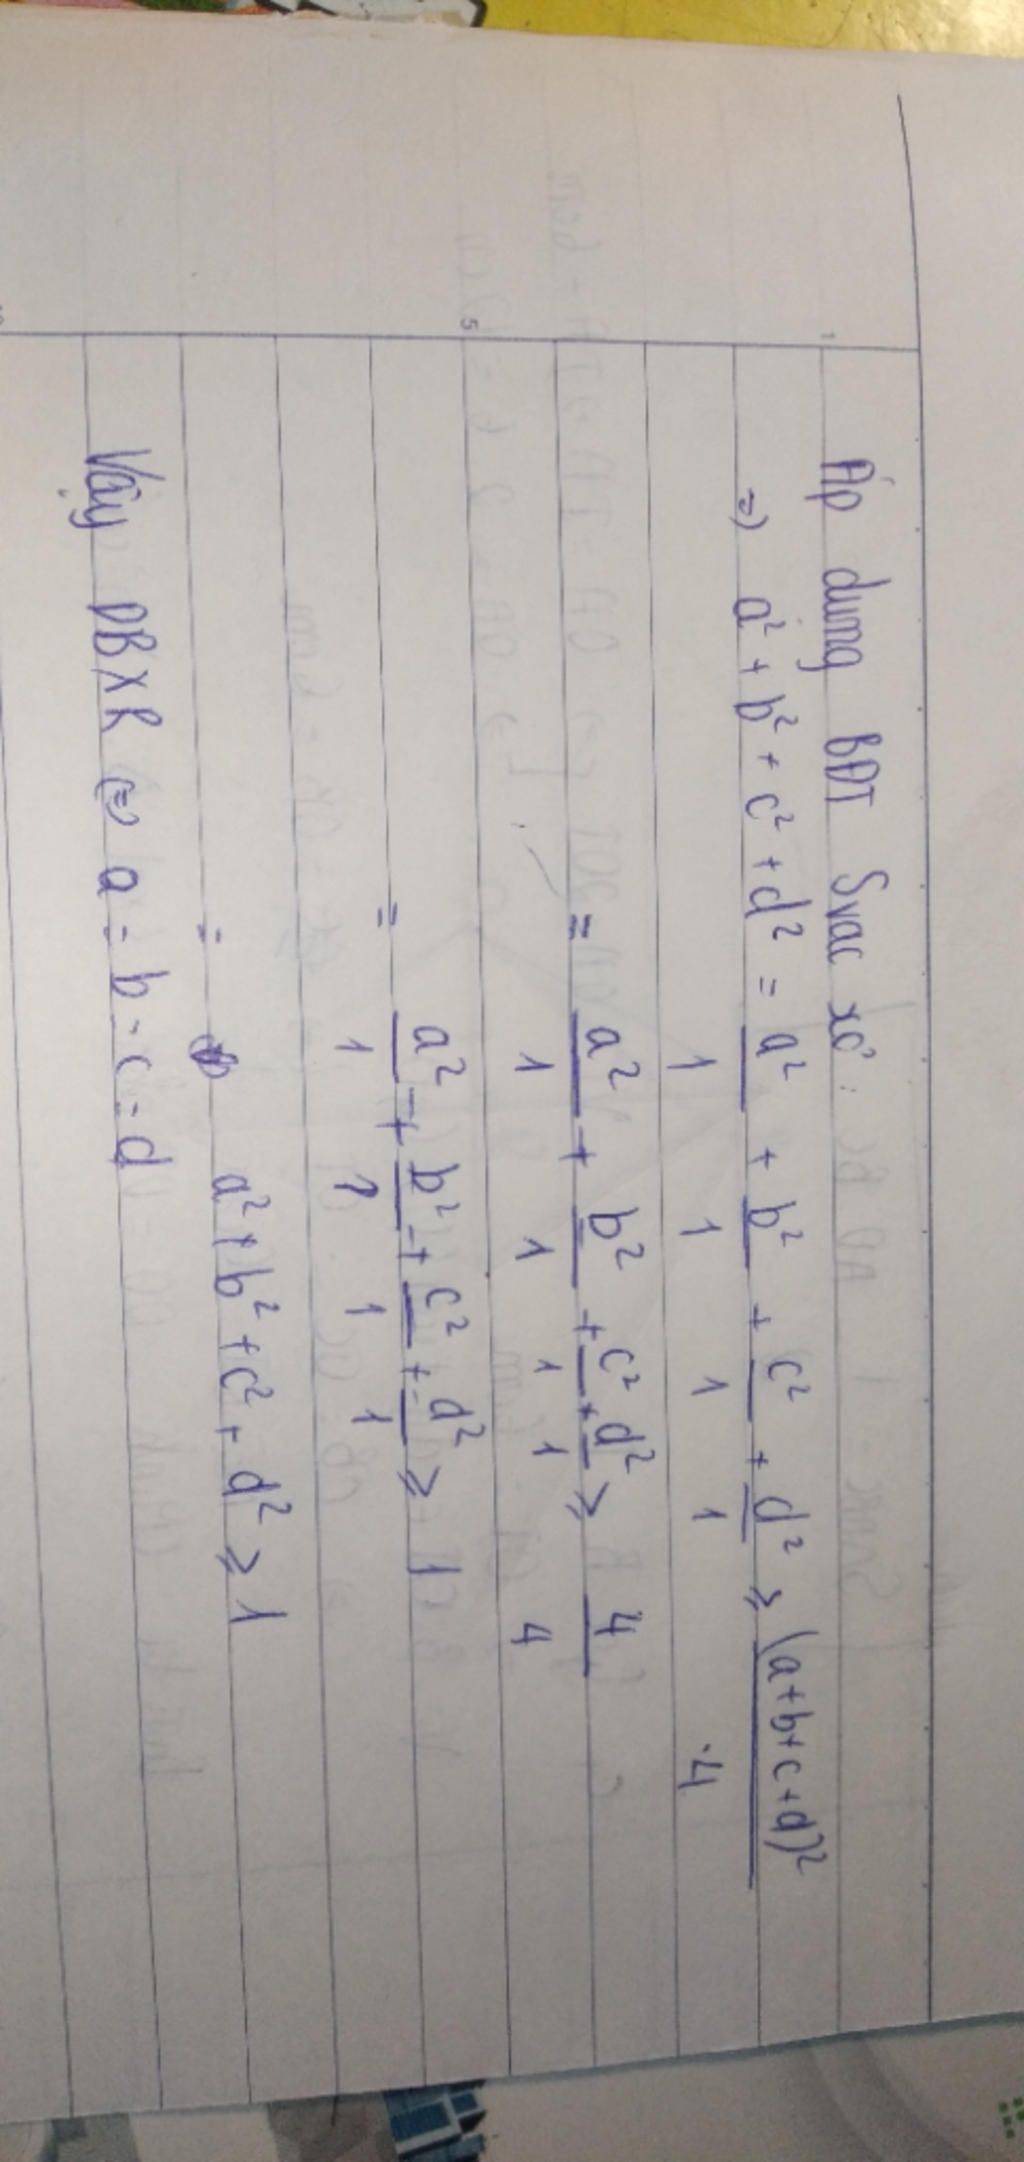 Áp dụng BĐT Svac xơ :
=) a² + b² + c² + d² = a²/1 + b²/1 + c²/1 + d²/1 ≥ (a+b+c+d)²/4
= a²/1 + b²/1 + c²/1 + d²/1 ≥ 4/4
= a²/1 + b²/1 + c²/1 + d²/1 ≥ 1
= a² + b² + c² + d² ≥ 1
Vậy DBXR (=) a = b = c = d
1
5